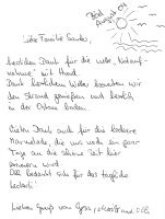 Insel
August 04
Liebe Familie Sander,
herzlichen Dank für die nette "Aufnahme" mit Hund.
Dank herrlichem Wetter konnten wir
den Strand genießen und herrlich
in der Ostsee baden.
Vielen Dank auch für die leckere
Marmelade, die uns noch ein paar
Tage an die schöne Zeit hier
erinnern wird.
bedankt sich für das tägliche
Leckerli!
Lieben Gruß von